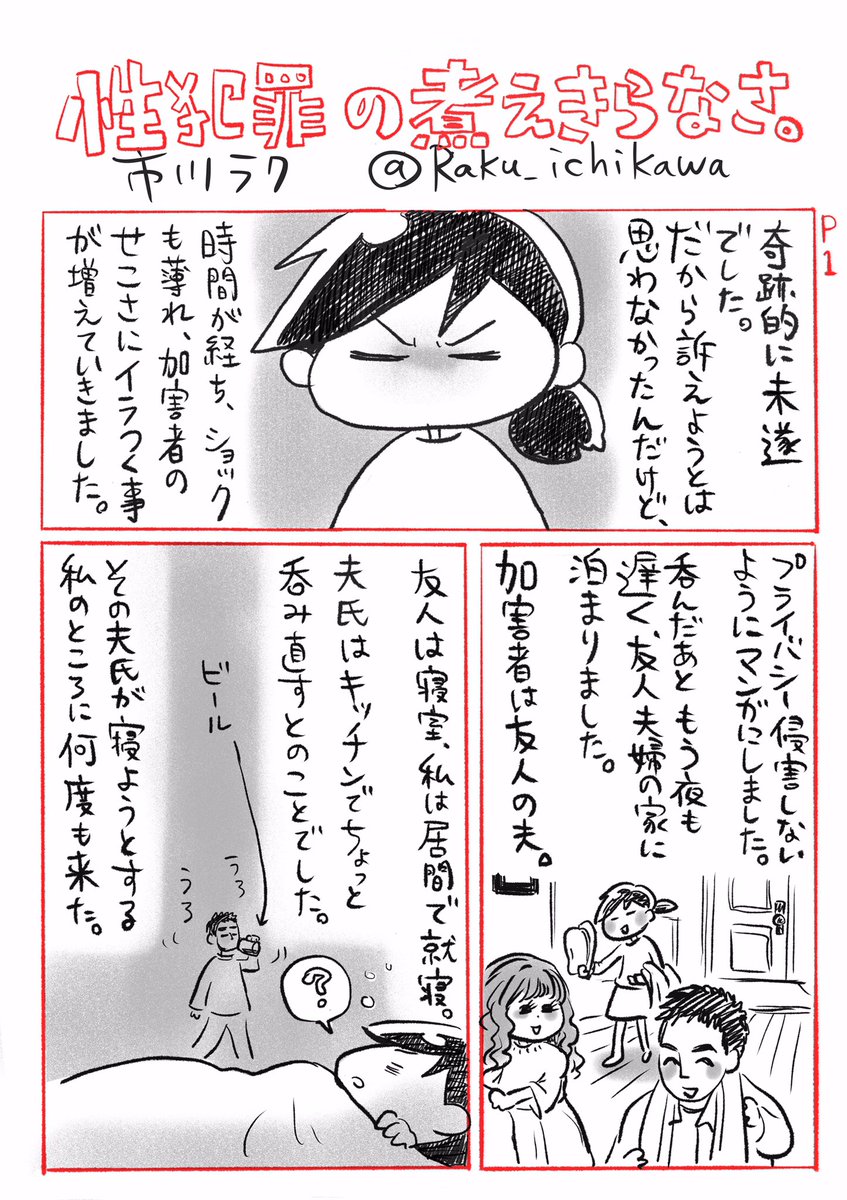 性犯罪の煮えきらなさ。
市川ラク @Raku_ichikawa
P1
奇跡的に未遂
でした。
だから訴えようとは
思わなかったんだけど、
時間が経ち、ショック
も薄れ、加害者の
せこさにイラつく事
が増えていきました。
プライバシー侵害しない
ようにマンガにしました。
呑んだあともう夜も
遅く、友人夫婦の家に
泊まりました。
加害者は友人の夫。
友人は寝室、私は居間で就寝。
夫氏はキッチンでちょっと
呑み直すとのことでした。
ビール
うろ
うろ
?
その夫氏が寝ようとする
私のところに何度も来た。